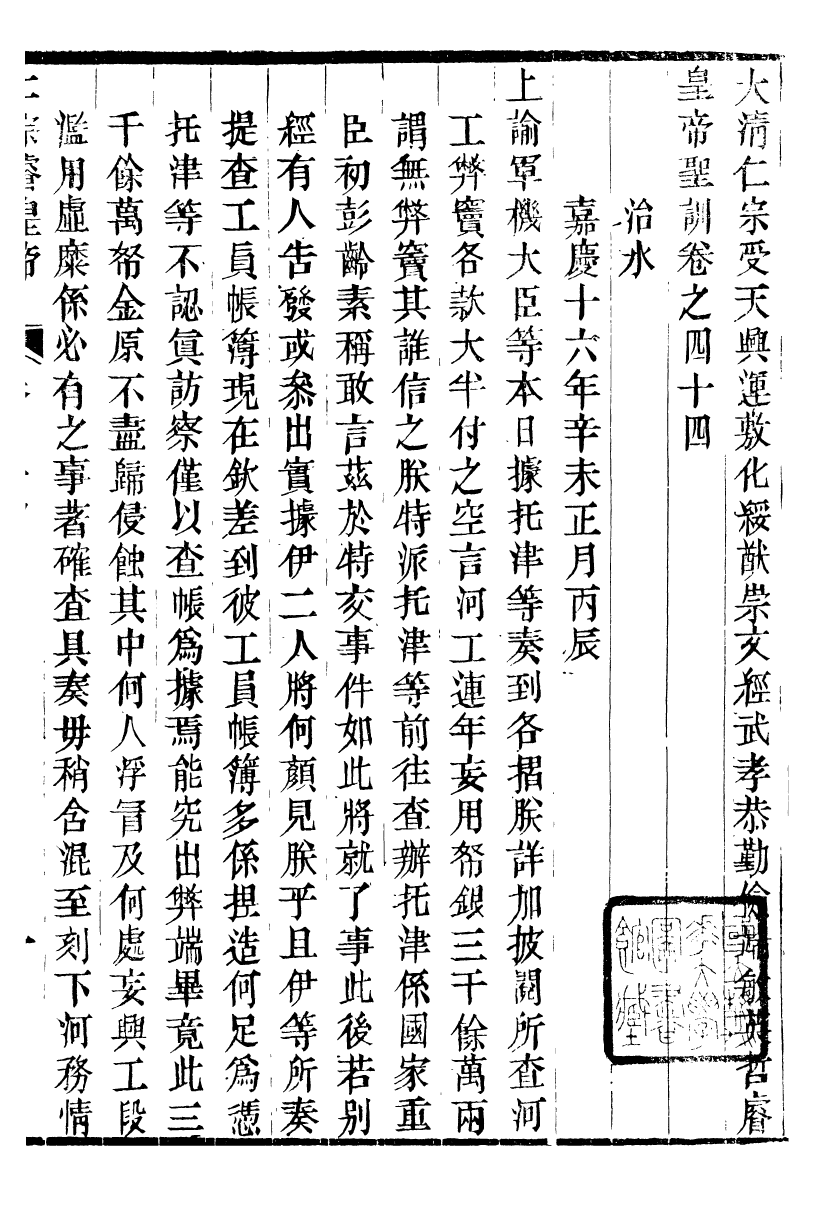 大清仁宗受天興運敷化綏猷崇文經武孝恭勤儉端敏英哲睿
皇帝聖訓卷之四十四
治水
嘉慶十六年辛未正月丙辰
上諭軍機大臣等本日據托津等奏到各摺朕詳加披閱所查河
工弊竇各款大半付之空言河工連年妄用帑銀三千餘萬兩
謂無弊竇其誰信之朕特派托津等前往查辦托津係國家重
臣初彭齡素稱敢言茲於特交事件如此將就了事此後若別
經有人告發或叅出實據伊二人將何顏見朕乎且伊等所奏
提查工員帳簿現在欽差到彼工員帳簿多係捏造何足爲憑
托津等不認眞訪察僅以查帳爲據焉能究出弊端畢竟此三
千餘萬帑金原不盡歸侵蝕其中何人浮冒及何處妄興工段
濫用虛糜係必有之事著確查具奏毋稍含混至刻下河務情
仁宗睿皇帝